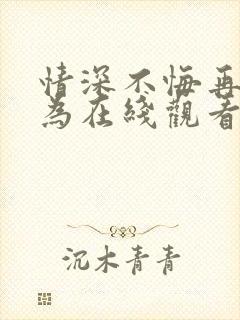 情深不悔再
為在綫觀看
沉木青青